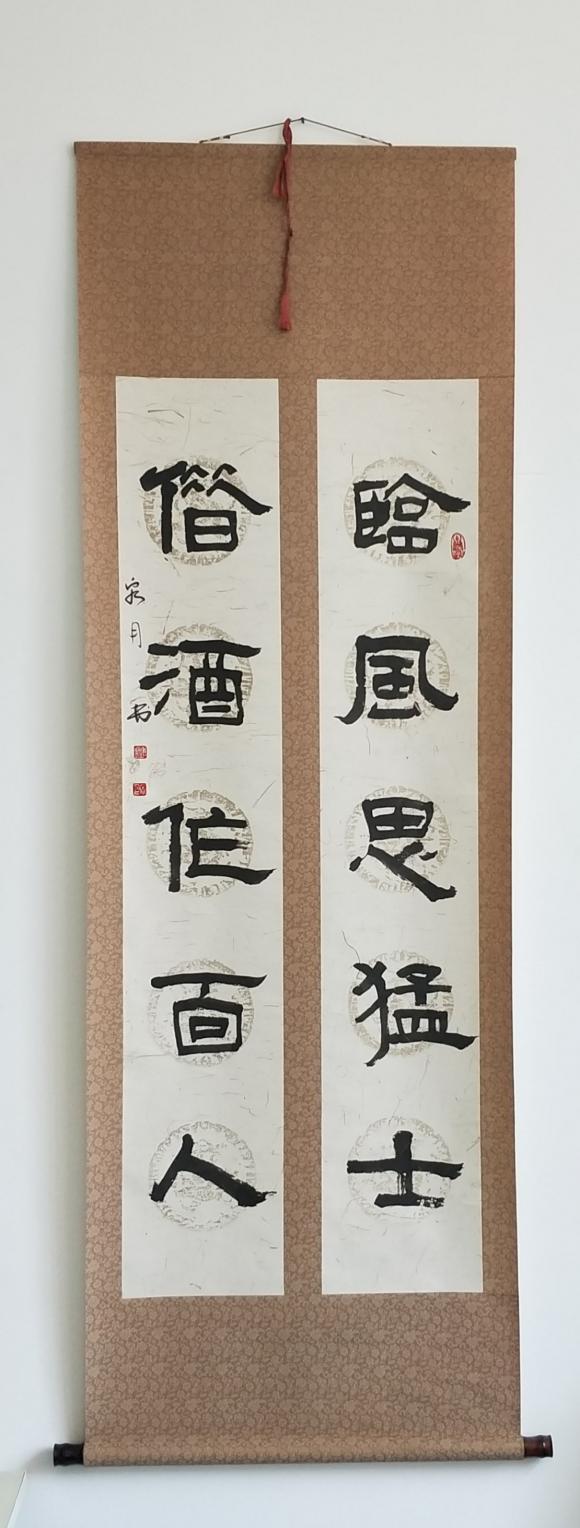 臨風思猛士
借酒作百人
泉月书